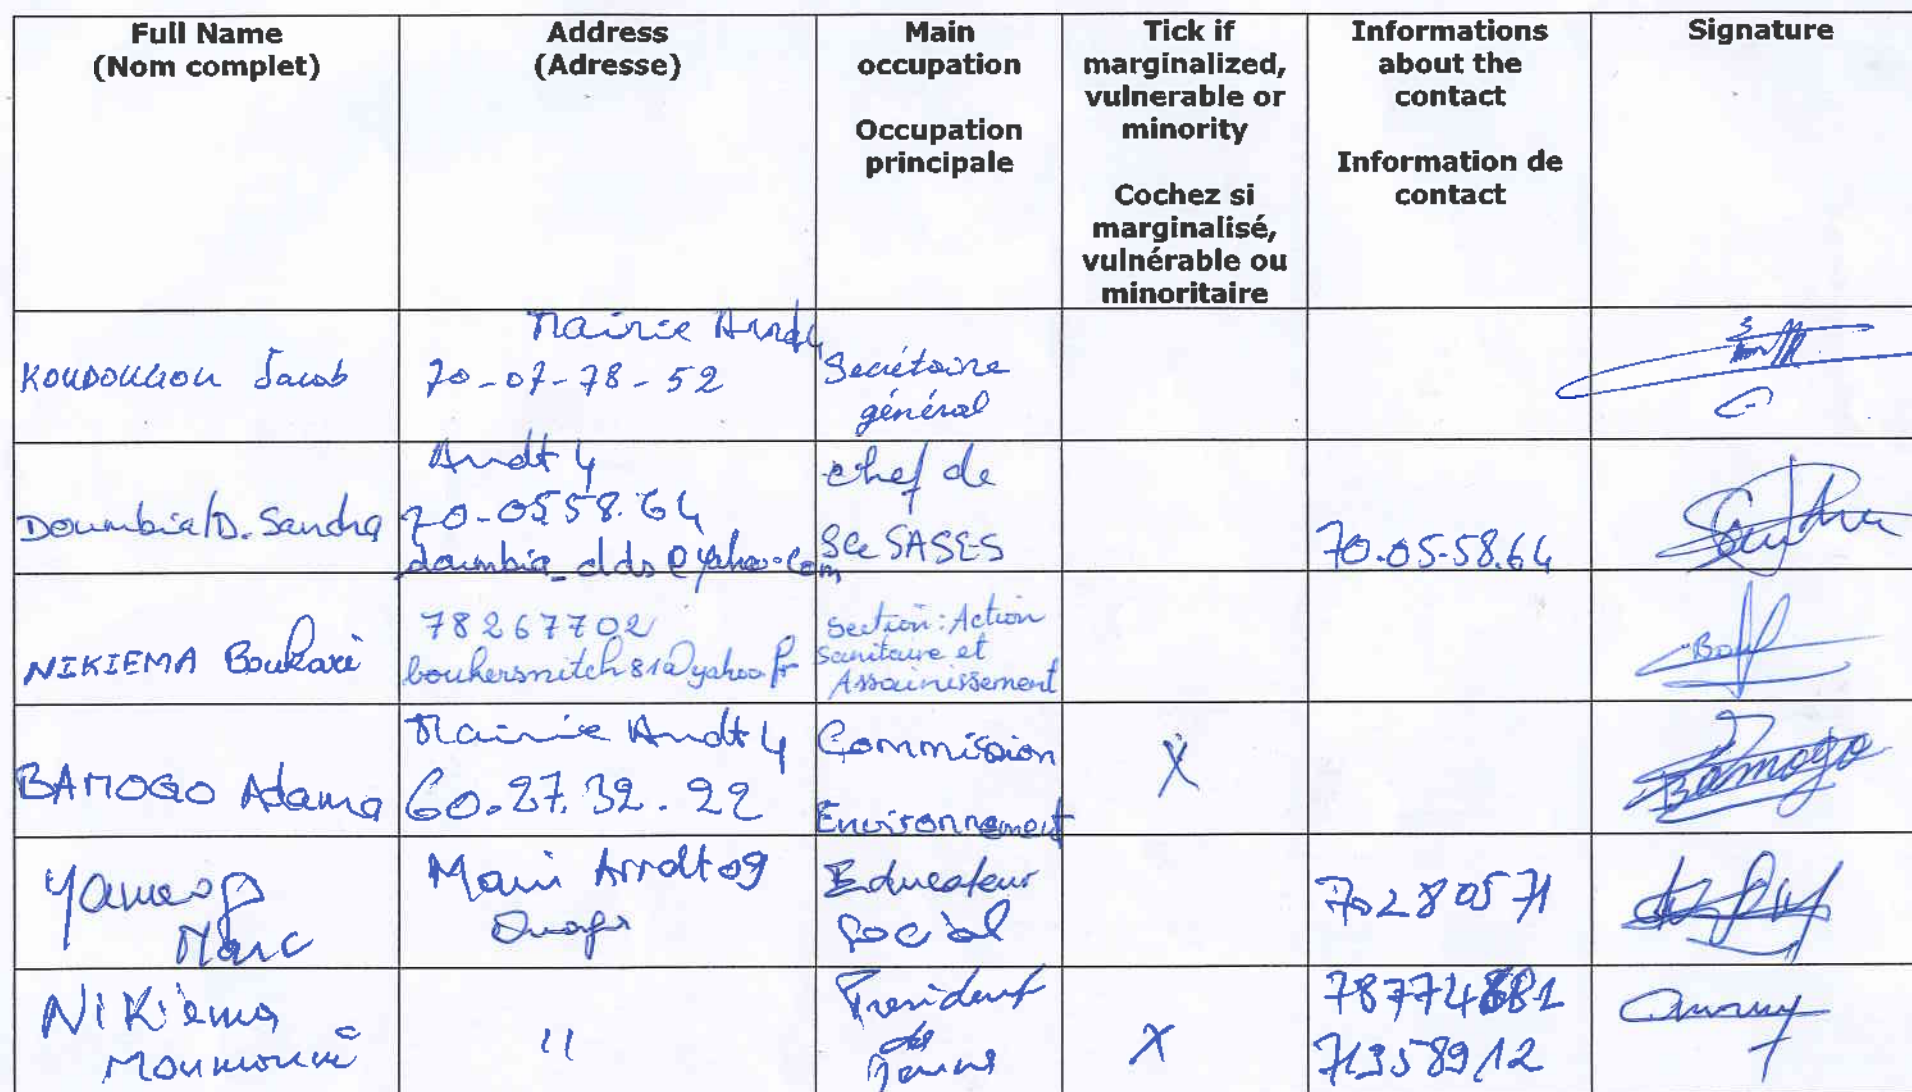 Full Name
(Nom complet)
Address
(Adresse)
Main
occupation
Occupation
principale
Tick if
marginalized,
vulnerable or
minority
Cochez si
marginalisé,
vulnérable ou
minoritaire
Informations
about the
contact
Information de
contact
Signature
KOUDOUGOU Jacob
Mairie Arrdt 4
70-07-78-52
Secrétaire
général
Doumbia/D. Sandra
Arrdt 4
70-05 58.64
doumbia_dds@yahoo.com
chef de
Sce SASES
70.05-58.64
NIKIEMA Boukaré
78267702
boukersmitch81@yahoo.fr
Section: Action
Sanitaire et
Assainissement
BAMOGO Adama
Mairie Arrdt 4
60.27.32.22
Commission
Environnement
X
Bamogo
Marc
Mairi Arrdt 09
Ouaga
Educateur
Social
70280571
NIKiema
Moumouni
"
President
des
Jeunes
X
71358912